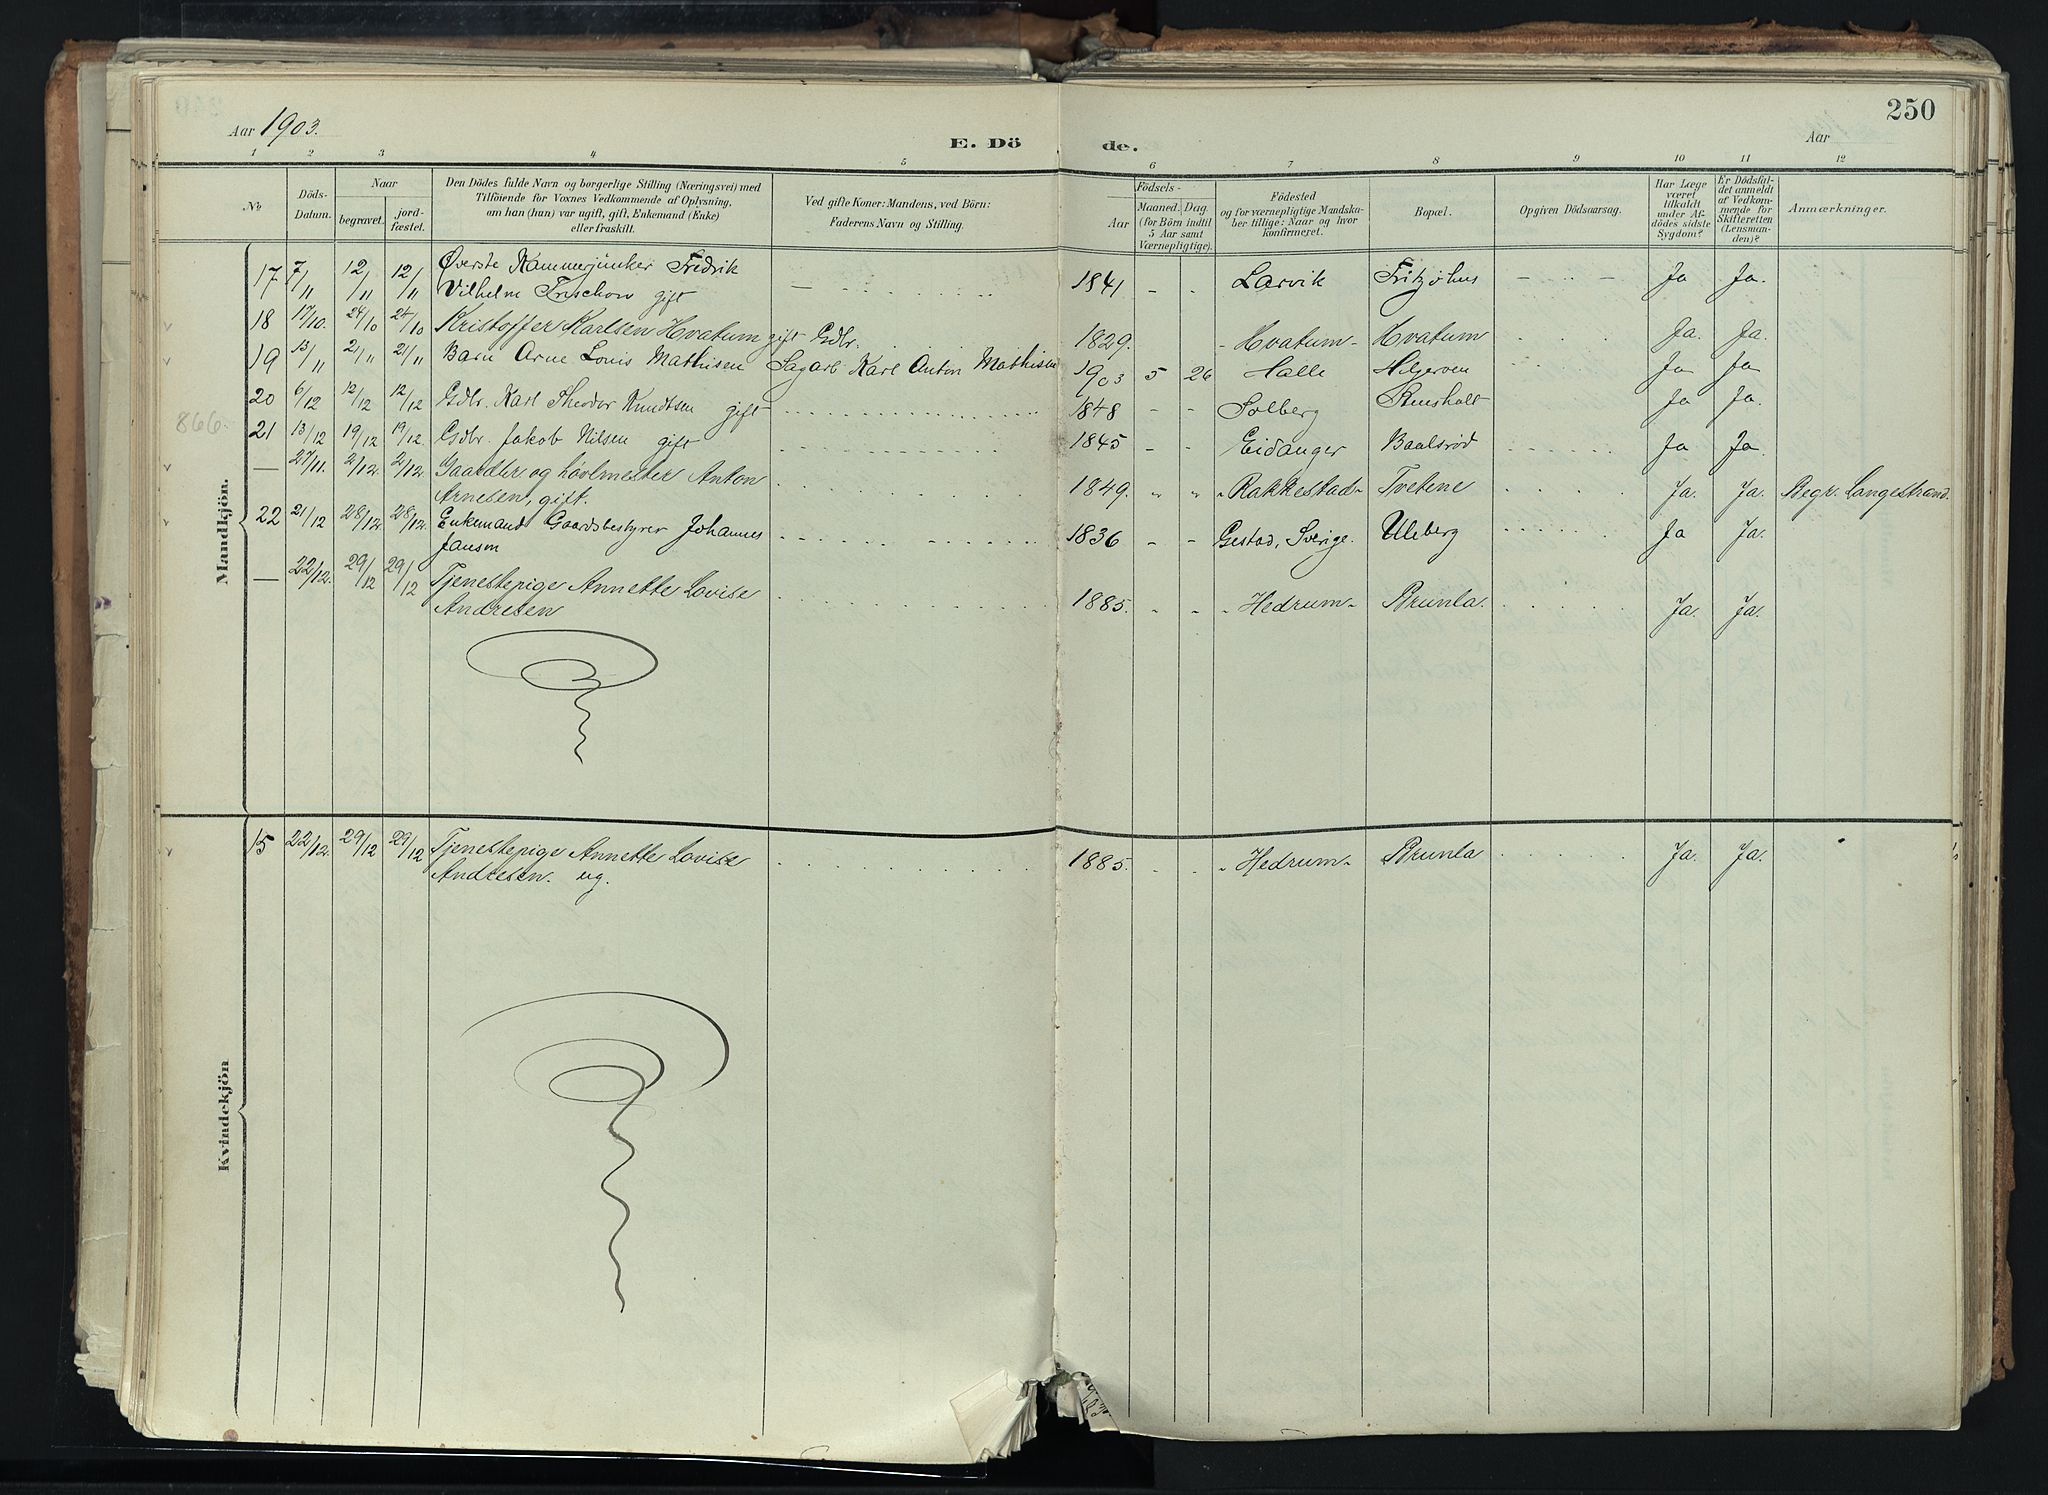 250
Aar 1903.
E. Döde.
Aar
1 2 3 4 5 6 7 8 9 10 11 12
No
Döds-Datum.
Naar
begravet. jord-fæstet.
Den Dödes fulde Navn og borgerlige Stilling (Næringsvei) med
Tilföiende for Voxnes Vedkommende af Oplysning,
om han (hun) var ugift, gift, Enkemand (Enke)
eller fraskilt.
Ved gifte Koner: Mandens, ved Börn:
Faderens Navn og Stilling.
Födsels-
Aar Maaned. Dag.
(for Börn indtil
5 Aar samt
Værnepligtige).
Födested
og for værnepligtige Mandska-
ber tillige: Naar og hvor
konfirmeret.
Bopæl.
Opgiven Dödsaarsag.
Har Læge
været
tilkaldt
under Af-
dödes sidste
Sygdom?
Er Dödsfal-
det anmeldt
af Vedkom-
mende for
Skifteretten
(Lensman-
den)?
Anmærkninger.
Mandkjön.
17 7/11 12/11 12/11 Øverste Kammerjunker Fredrik
Vilhelm Treschow gift 1841 - - Larvik Fritzøhus Ja Ja.
18 17/10. 24/10 24/10 Kristoffer Karlsen Hvatum gift Gdbr. 1829. - Hvatum - Hvatum Ja. Ja.
19 13/11 21/11 21/11 Barn Arne Louis Mathisen Sagarb Karl Anton Mathisen 1903 5 26 Halle Helgeroen Ja Ja
20 6/12 12/12 12/12 Gdbr. Karl Theodor Knudtsen gift 1848 - - Solberg Stensholt Ja Ja.
866.
21 13/12 19/12 19/12 Gdbr. Jakob Nilsen gift 1845 - - Eidanger Baalsrød Ja Ja.
— 27/11. 2/12. 2/12. Gaardbr og høvlmester Anton
Arnesen, gift. 1849. " " - Rakkestad - Tvetene Ja. Ja. Begr. Langestrand.
22 21/12 28/12. 28/12. Enkemand Gaardsbestyrer Johannes
Janson 1836 - - Gestad, Sverige. Uleberg Ja Ja.
— 22/12. 29/12 29/12 Tjenestepige Annette Lovise
Andresen 1885. - - - Hedrum - Brunla. Ja. Ja.
Kvindekjön
15 22/12. 29/12 29/12 Tjenestepige Annette Lovise
Andresen. ug. 1885. - - - Hedrum - Brunla Ja. Ja.